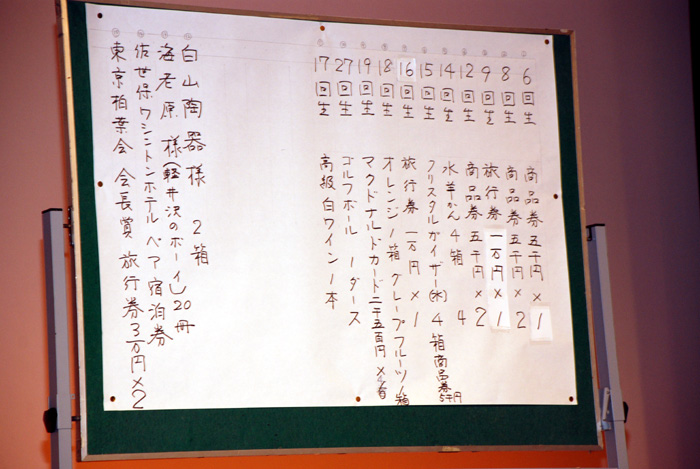 6回生 商品券 五千円×1
8回生 商品券 五千円×2
9回生 旅行券 一万円×1
12回生 商品券 五千円×2
14回生 水羊かん 4箱 4
15回生 クリスタルガイザー(水) 4箱 商品券 5千円
16回生 旅行券 一万円×1
18回生 オレンジ1箱 グレープフルーツ1箱
19回生 マクドナルドカード 二千五百円×4名
27回生 ゴルフボール 1ダース
17回生 高級白ワイン1本
白山陶器様 2箱
海老原様(軽井沢のボーイ) 20冊
佐世保ワシントンホテル ペア宿泊券
東京柏葉会 会長賞 旅行券3万円×2